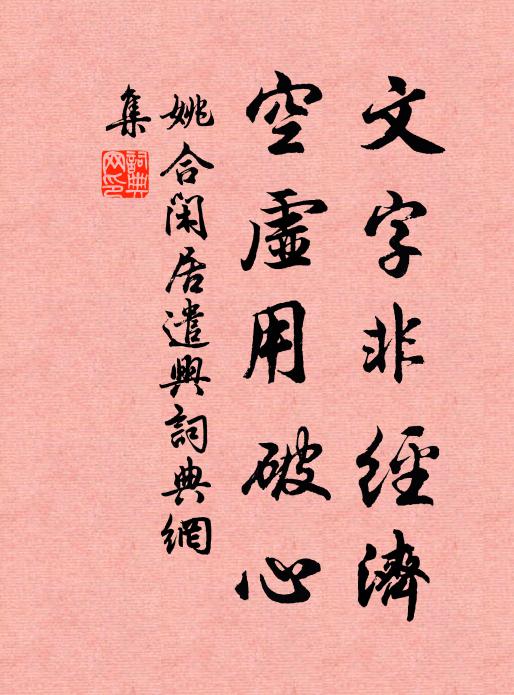 文字非經濟
空虛用破心
姚合閑居遣興詞典網
集
詞典網印